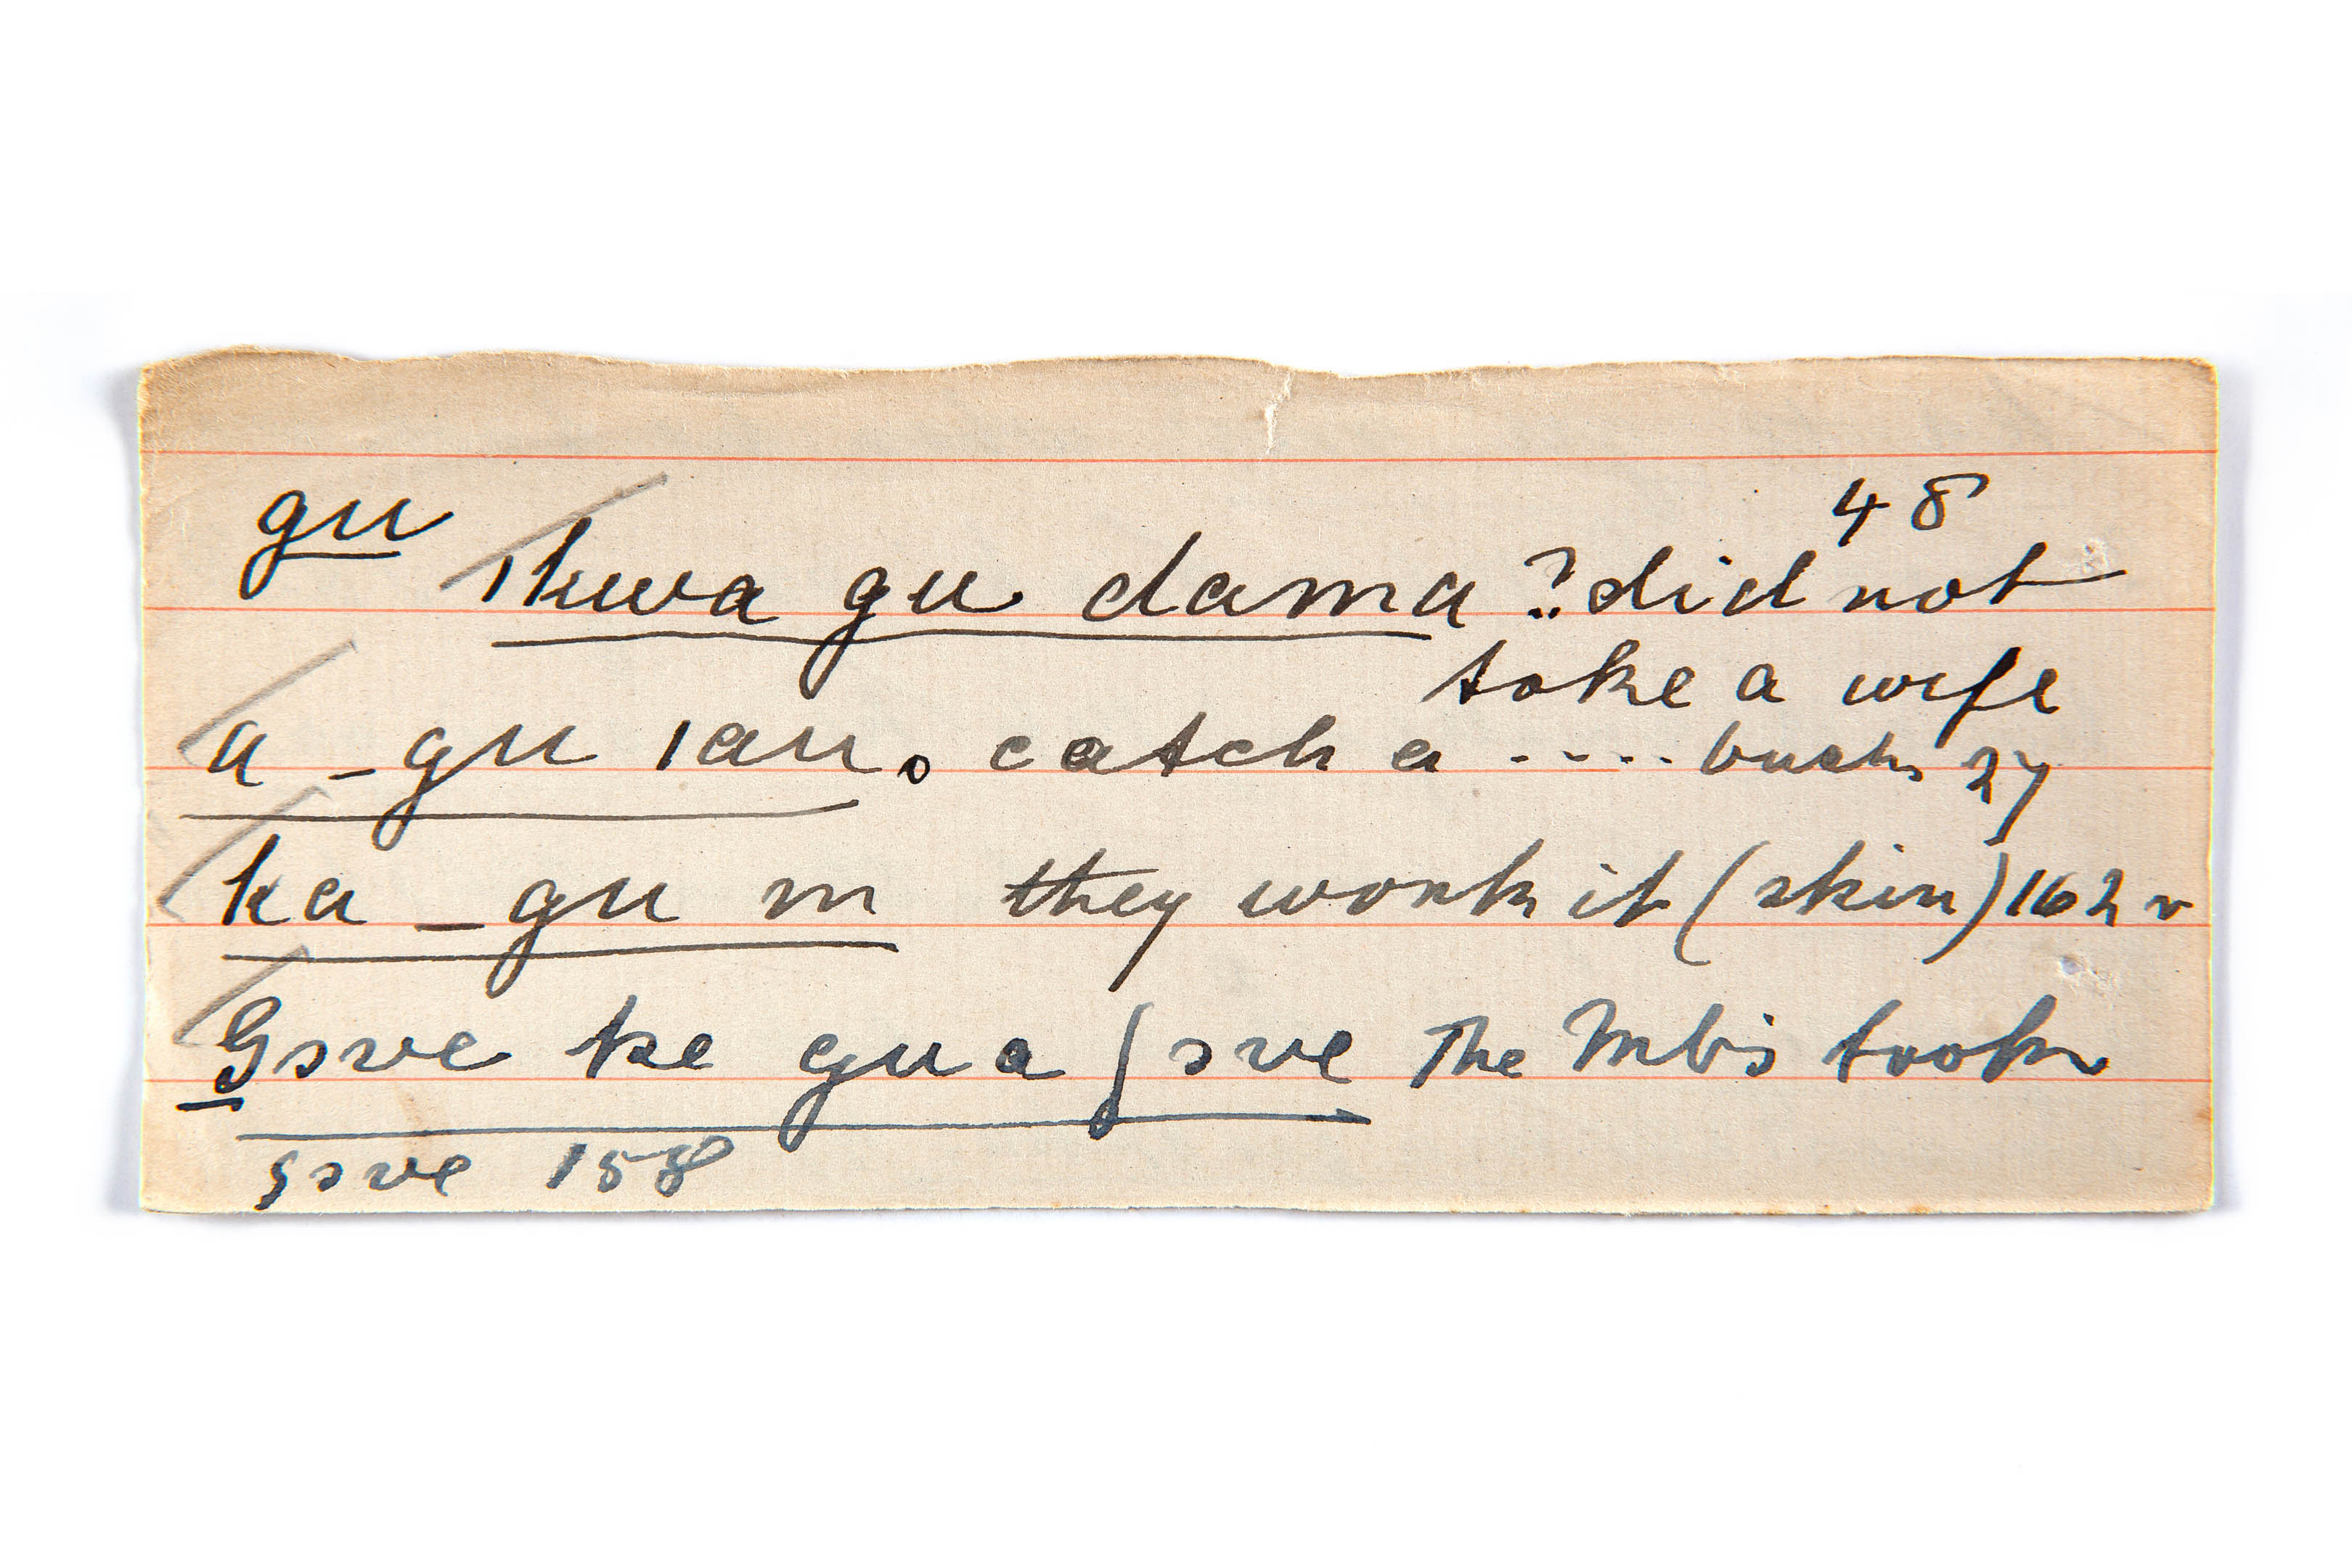 gu 48
ıkwa gu dama ? did not
take a wife
a - gu ıau. catch a ---- bush 27
ka - gu m they work it (skin) 162 v
Gɔve ke gu a ʃɔve The Mbis took
gɔve 158